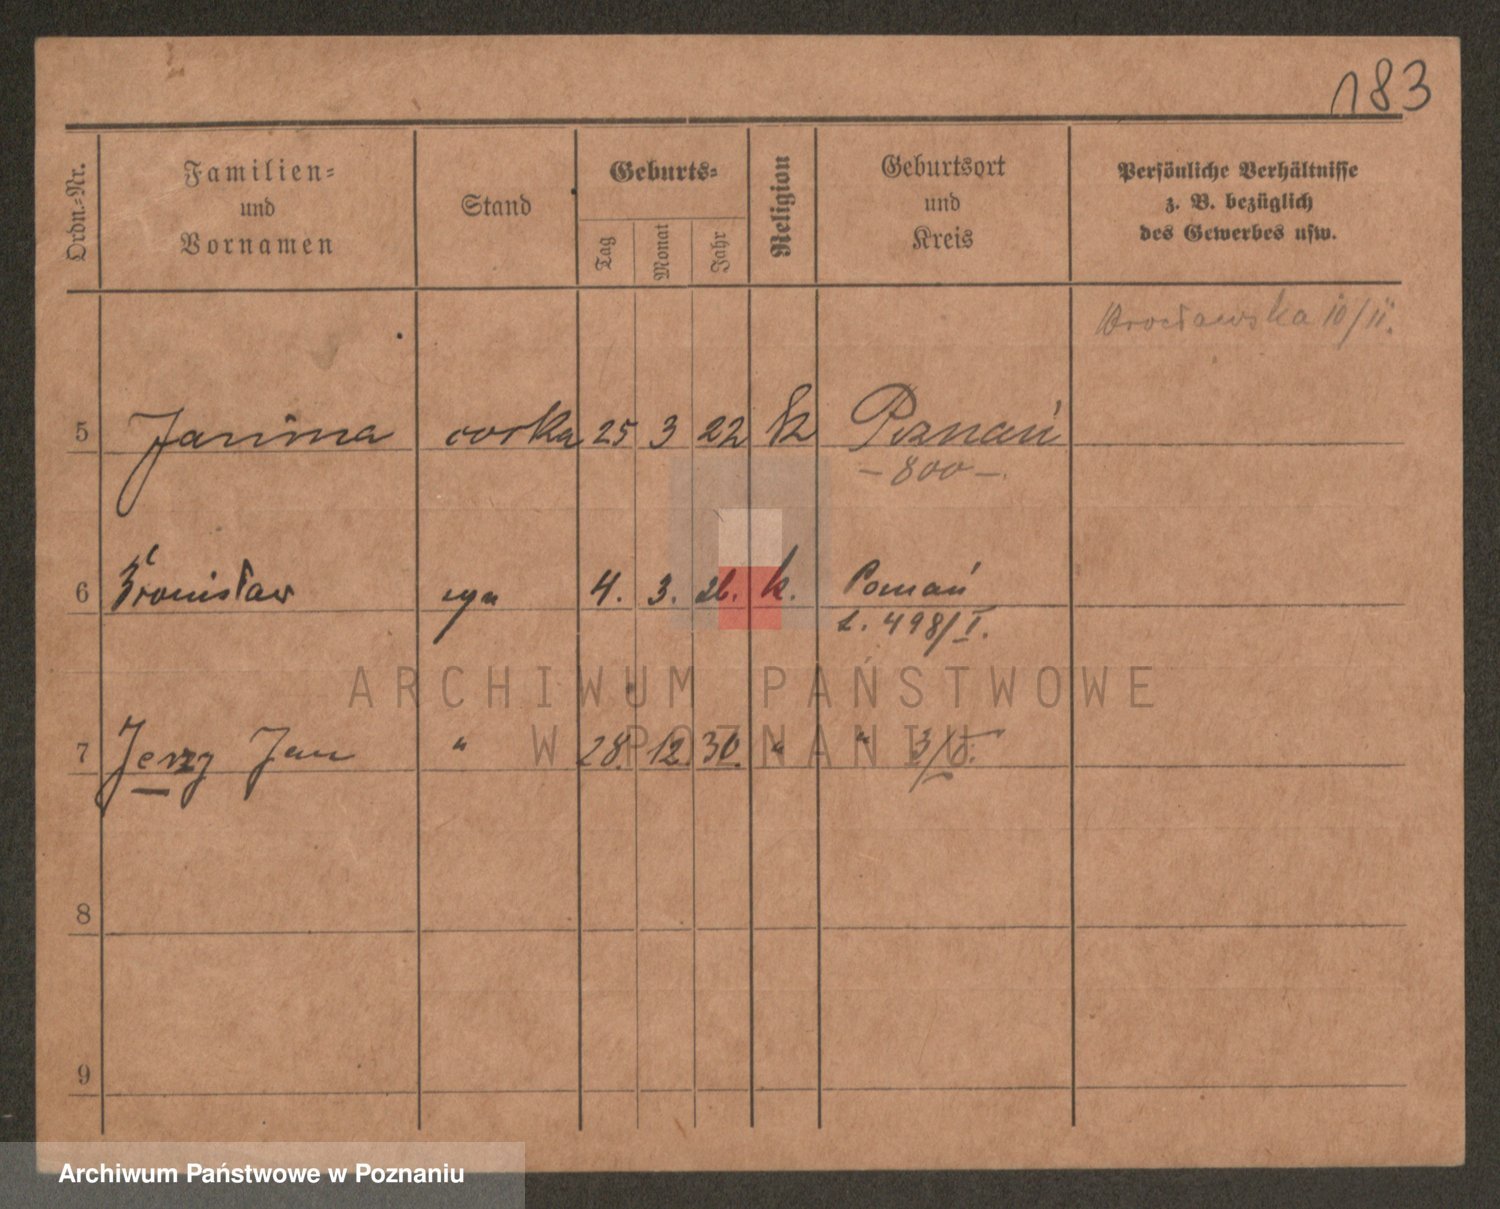 183
Ordn.-Nr.
Familien-
und
Vornamen
Stand
Geburts-
Tag
Monat
Jahr
Religion
Geburtsort
und
Kreis
Persönliche Verhältnisse
z. B. bezüglich
des Gewerbes usw.
Wrocławska 10/11.
5 Janina corka 25 3 22 k Poznań
- 800 -.
6 Bronisław syn 4. 3. 26. k. Poznań
L. 498/I.
7 Jerzy Jan " 28. 12. 30. " "
8
9
ARCHIWUM PAŃSTWOWE
W POZNANIU
Archiwum Państwowe w Poznaniu